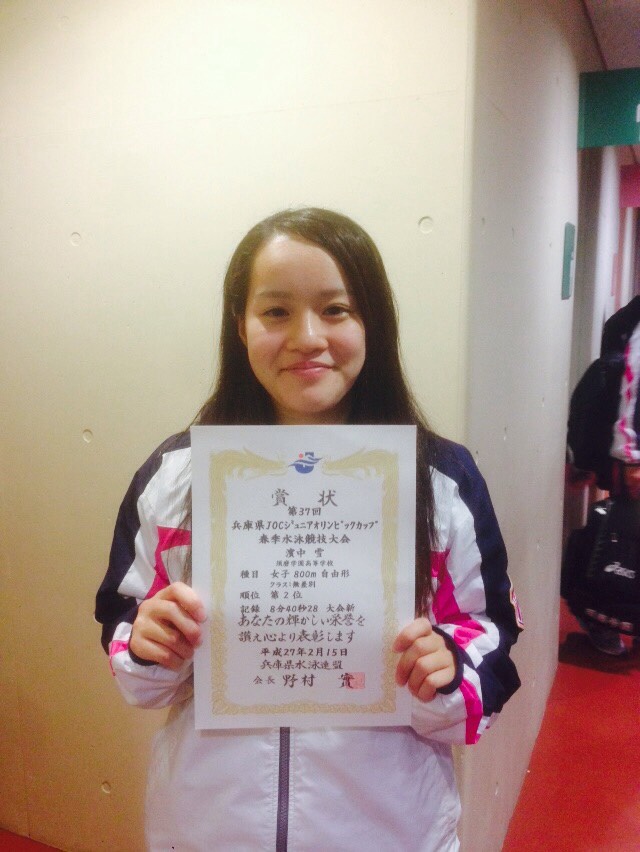 賞状
第37回
兵庫県JOCジュニアオリンピックカップ
春季水泳競技大会
濵中 雪
須磨学園高等学校
種目 女子 800m 自由形
クラス:無差別
順位 第2位
記録 8分40秒28 大会新
あなたの輝かしい栄誉を
讃え心より表彰します
平成27年2月15日
兵庫県水泳連盟
会長 野村 實
asics